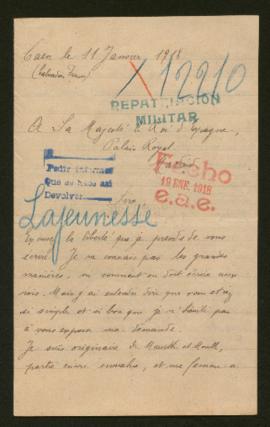 Caen le 11 Janvier 1918
(Calvados France)
X 12210
REPATRIACION
MILITAR
A Sa Majesté le Roi d'Espagne,
Palais Royal
Pedir informes
Que se hace así
Devolver
Fecho
19 ENE. 1918
e.a.e.
Sire
Lajeunesse
Excusez la liberté que je prends de vous
écrire. Je ne connais pas les grandes
manières, ni comment on doit écrire aux
rois. Mais j'ai entendu dire que vous étiez
si simple et si bon que je n'hésite pas
à vous exposer ma demande.
Je suis originaire de Meurthe et Moselle,
partie encore envahie, et ma femme a